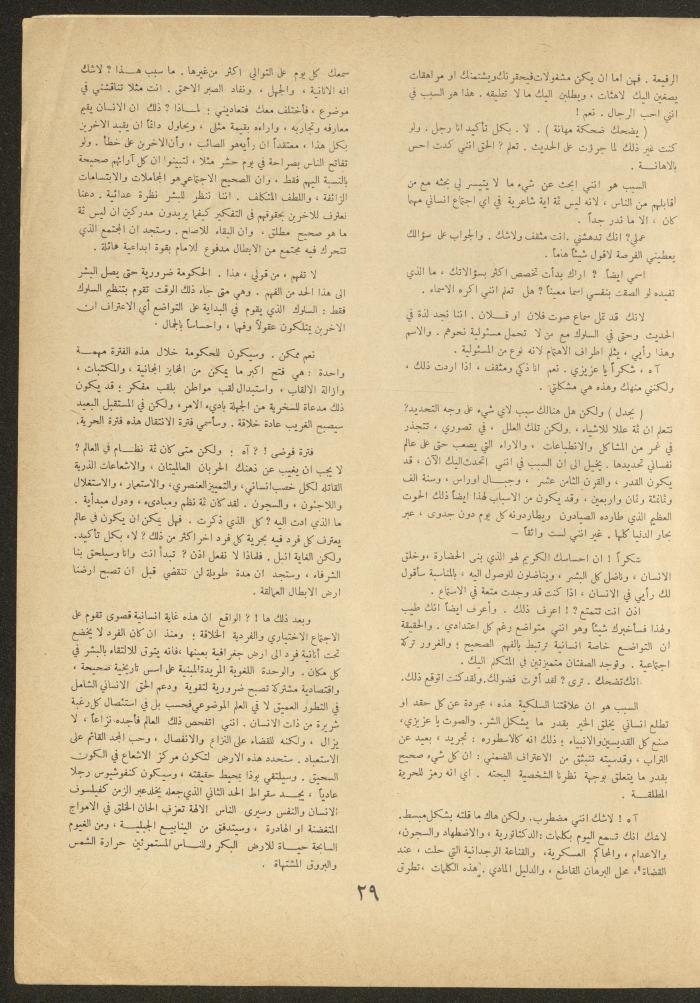 الرقيعة . فهن اما ان يكن مشغولات فيحقرنك ويشتمنك او مراهقات
يصغين اليك لاهثات ، ويطلبن اليك ما لا تطيقه . هذا هو السبب في
انني احب الرجال . نعم !
( يضحك ضحكة مهانة ) . لا . بكل تأكيد انا رجل . ولو
كنت غير ذلك لما جرؤت على الحديث . تعلم ? الحق انني كدت احس
بالاهانـــة .
السبب هو انني ابحث عن شيء ما لا يتيسر لي بحثه مع من
أقابلهم من الناس ، لانه ليس ثمة اية شاعرية في اي اجتماع انساني مهما
كان ، الا ما ندر جداً .
عملي? انك تدهشني . انت مثقف ولاشك . والجواب على سؤالك
يعطيني الفرصة لاقول شيئاً هاماً .
اسمي ايضاً ? اراك بدأت تخصص اكثر بسؤالاتك ، ما الذي
تفيده لو الصقت بنفسي اسما معيناً ? هل تعلم انني اكره الاسماء .
لانك قد تمل سماع صوت فلان او فــلان . اننا نجد لذة في
الحديث وحتى في السلوك مع من لا تحمل مسئولية نحوهم . والاسم
وهذا رأيي ، يثلم اطراف الاهتمام لانه نوع من المسئولية .
آه ، شكراً يا عزيزي . نعم انا ذكي ومثقف ، اذا اردت ذلك ،
ولكنني منهك وهذه هي مشكلتي .
( يجدل ) ولكن هل هنالك سبب لاي شيء على وجه التحديد?
نتعلم ان ثمة عللا للاشياء . ولكن تلك العلل ، في تصوري ، تتجذر
في غمر من المشاكل والانطباعات ، والاراء التي يصعب حتى على عالم
نفساني تحديدها . يخيل الى ان السبب في انني اتحدث اليك الآن ، قد
يكون القدر ، والقرن الثامن عشر ، وجبــال اوراس ، وسنة الف
وثمانمئة وثمان واربعين ، وقد يكون من الاسباب لهذا ايضاً ذلك الحوت
العظيم الذي طارده الصيادون ويطاردونه كل يوم دون جدوى ، عبر
بحار الدنيا كلها . غير انني لست واثقاً —
شكراً ! ان احساسك الكريم لهو الذي بنى الحضارة ، وخلق
الانسان ، وناضل كل البشر ، ويناضلون للوصول اليه ، بالمناسبة سأقول
لك رأيي في الانسان ، اذا كنت قد وجدت متعة في الاستماع .
اذن انت تتمتع ? ! اعرف ذلك . وأعرف ايضاً انك طيب
ولهذا فسأخبرك شيئاً وهو انني متواضع رغم كل اعتدادي . والحقيقة
ان التواضع خاصة انسانية ترتبط بالفهم الصحيح ؛ والغرور تركة
اجتماعية . وتوجد الصفتان متميزتين في المتكلم اليك .
انك تضحك . ترى ? لقد أثرت فضولك . ولقد كنت اتوقع ذلك.
السبب هو ان علاقتنا السلكية هذه ، مجردة عن كل حقد او
تطلع انساني يخلق الخير بقدر ما يشكل الشر. والصوت يا عزيزي،
صنع كل القديسين والانبياء ؛ ذلك انه كالاسطوره : تجريد ، بعيد عن
التراب ، وقدسيته تنبثق من الاعتراف الضمني : ان كل شيء صحيح
بقدر ما يتعلق بوجهة نظرنا الشخصية البحته . اي انه رمز للحرية
المطلقـــة .
آه ! لاشك انني مضطرب. ولكن هاك ما قلته بشكل مبسط.
لاشك انك تسمع اليوم بكلمات : الدكتاتورية ، والاضطهاد والسجون،
والاعدام ، والمحاكم العسكرية ، والقناعة الوجدانية التي حلت ، عند
القضاة ، محل البرهان القاطع ، والدليل المادي . هذه الكلمات ، تطرق
سمعك كل يوم على التوالي اكثر من غيرها . ما سبب هــذا ? لاشك
انه الانانية ، والجهل ، ونفاد الصبر الاحمق . انت مثلا تناقشني في
موضوع ، فأختلف معك فتعاديني ؛ لمــاذا ? ذلك ان الانسان يقيم
معارفه وتجاربه ، واراءه بقيمة مثلى ، ويحاول دائماً ان يقيد الاخرين
بكل هذا ، معتقداً ان رأيه هو الصائب ، وأن الاخرين على خطأ . ولو
تفاتح الناس بصراحة في يوم حشر مثلا ، لتبينوا ان كل آرائهم صحيحة
بالنسبة اليهم فقط ، وان الصحيح الاجتماعي هو المجاملات والابتسامات
الزائفة ، واللطف المتكلف . اننا ننظر للبشر نظرة عدائية . دعنا
نعترف للاخرين بحقوقهم في التفكير كيفما يريدون مدركين ان ليس ثمة
ما هو صحيح مطلق ، وان البقاء للاصلح . وستجد ان المجتمع الذي
تتحرك فيه مجتمع من الابطال مدفوع للامام بقوة ابداعية هائلة .
لا تفهم ، من قولي ، هذا . الحكومة ضرورية حتى يصل البشر
الى هذا الحد من الفهم . وهي متى جاء ذلك الوقت تقوم بتنظيم السلوك
فقط : السلوك الذي يقوم في البداية على التواضع أي الاعتراف ان
الاخرين يمتلكون عقولاً وفهما ، واحساساً بالجمال .
نعم ممكن . وسيكون للحكومة خلال هذه الفترة مهمـــة
واحدة : هي فتح اكبر ما يمكن من المخابز المجانية ، والمكتبات ،
وازالة الالقاب ، واستبدال لقب مواطن بلقب مفكر ؛ قد يكون
ذلك مدعاة للسخرية من الجهلة بادىء الامر، ولكن في المستقبل البعيد
سيصبح الغريب عادة خلاقة . وسأسمي فترة الانتقال هذه فترة الحرية.
فترة فوضى ! ? آه ؛ ولكن متى كان ثمة نظــام في العالم ?
لا يجب ان يغيب عن ذهنك الحربان العالميتان ، والاشعاعات الذرية
القاتله لكل خصب انساني، والتمييز العنصري، والاستعمار ، والاستغلال
واللاجئون ، والسجون . لقد كان ثمة نظم ومبادىء، ودول مبدأية .
ما الذي ادت اليه ? كل الذي ذكرت . فهل يمكن ان يكون في عالم
يعترف كل فرد فيه بحرية كل فرد اخر اكثر من ذلك ? لا ، بكل تأكيد.
ولكن الغاية انبل . فلماذا لا نفعل اذن ? تبدأ انت وانا وسيلحق بنا
الشرفاء ، وستجد ان مدة طويلة لن تنقضي قبل ان تصبح ارضنا
ارض الابطال العمالقة .
وبعد ذلك ها ! ? الواقع ان هذه غاية انسانية قصوى تقوم على
الاجتماع الاختياري والفردية الخلاقة ؛ ومنذ ان كان الفرد لا يخضع
تحت أنانية فرد الى ارض جغرافية بعينها ، فانه يتوق للالتقاء بالبشر في
كل مكان . والوحدة اللغوية المريدة المبنية على اسس تاريخية صحيحة ،
واقتصادية مشتركة تصبح ضرورية لتقوية ودعم الحق الانساني الشامل
في التطور العميق لا في العلم الموضوعي فحسب بل في استئصال كل رغبة
شريرة من ذات الانسان . انني اتفحص ذلك العالم فأجده نزاعاً ، لا
يزال ، ولكنه للقضاء على النزاع والانفصال ، وحب المجد القائم على
الاستعباد . ستحدد هذه الارض لتكون مركز الاشعاع في الكون
السحيق . وسيلتقي بوذا بمحيط حقيقته ، وسيكون كنفوشيوس رجلا
عادياً ، يجــد سقراط الحد الثاني الذي جعله يخلد عبر الزمن كفيلسوف
الانسان والنفس وسيرى الناس الالهة تعزف الحان الخلق في الامواج
المتغضنة او الهادرة ، وسيتدفق من الينابيع الجبليــة ، ومن الغيوم
السابحة حيــاة للارض البكر وللنــاس المستمرئين حرارة الشمس
والبروق المشتهاة .
٢٩